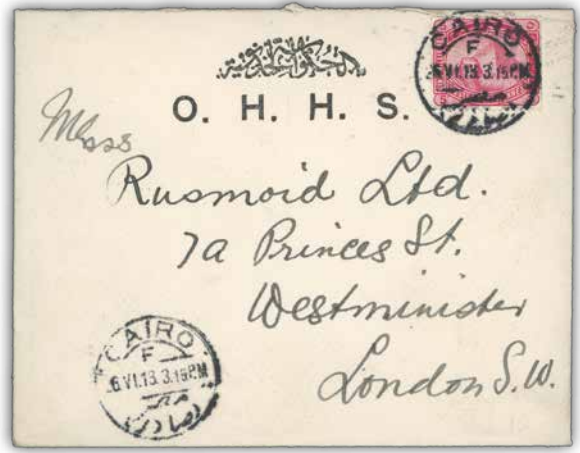 CAIRO
F
6 VI.13. 3.15 PM
O. H. H. S.
Messs
Rusmoid Ltd.
7a Princes St.
Westminister
London S.W.
CAIRO
F
6 VI.13. 3.15 PM